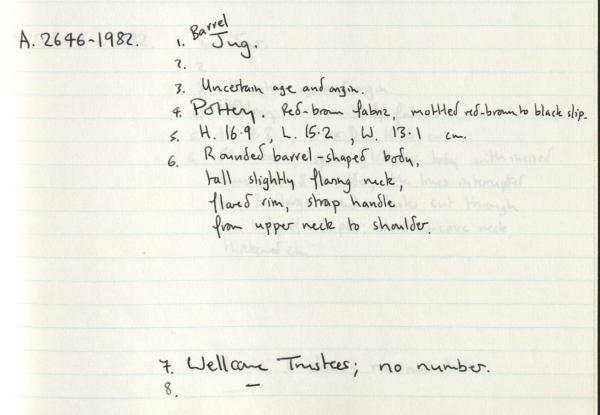 A. 2646-1982.
1. Barrel Jug.
2.
3. Uncertain age and origin.
4. Pottery. Red-brown fabric, mottled red-brown to black slip.
5. H. 16.9, L. 15.2, W. 13.1 cm.
6. Rounded barrel-shaped body,
tall slightly flaring neck,
flared rim, strap handle
from upper neck to shoulder.
7. Wellcome Trustees; no number.
8. –